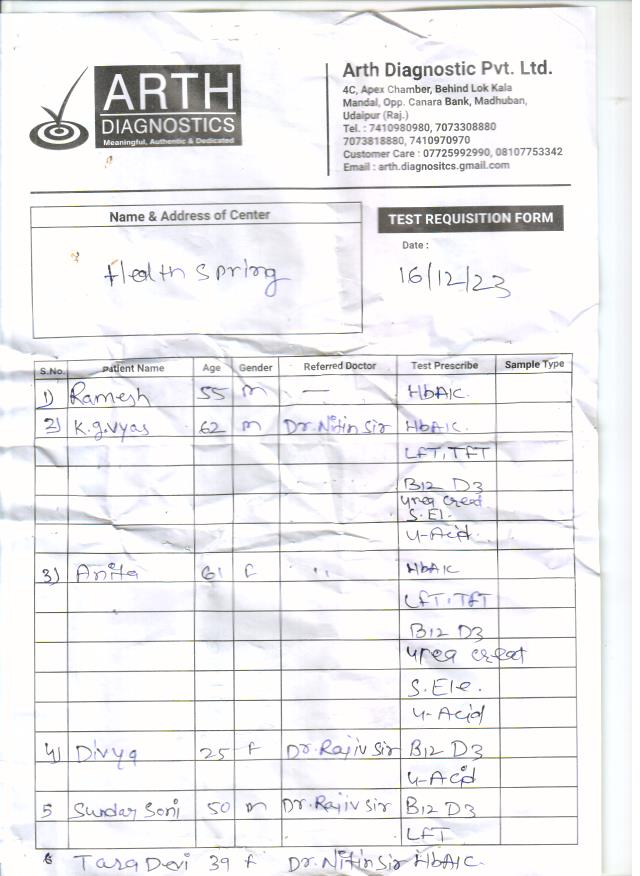 ARTH
DIAGNOSTICS
Meaningful, Authentic & Dedicated
Arth Diagnostic Pvt. Ltd.
4C, Apex Chamber, Behind Lok Kala
Mandal, Opp. Canara Bank, Madhuban,
Udaipur (Raj.)
Tel. : 7410980980, 7073308880
7073818880, 7410970970
Customer Care : 07725992990, 08107753342
Email : arth.diagnositcs.gmail.com
Name & Address of Center
Health Spring
TEST REQUISITION FORM
Date :
16/12/23
S.No. Patient Name Age Gender Referred Doctor Test Prescribe Sample Type
1) Ramesh 55 m — HbA1C.
2) K.g.vyas 62 m Dr. Nitin Sir HbA1C.
LFT, TFT
B12 D3
urea creat
S. El.
U-Acid.
3) Anita 61 f " HbA1C
LFT, TFT
B12 D3
urea creat
S. Ele.
U-Acid
4) Divya 25 f Dr. Rajiv Sir B12 D3
U-Acid
5 Sundar Soni 50 m Dr. Rajiv Sir B12 D3
LFT
6 Tara Devi 39 f Dr. Nitin Sir HbA1C.